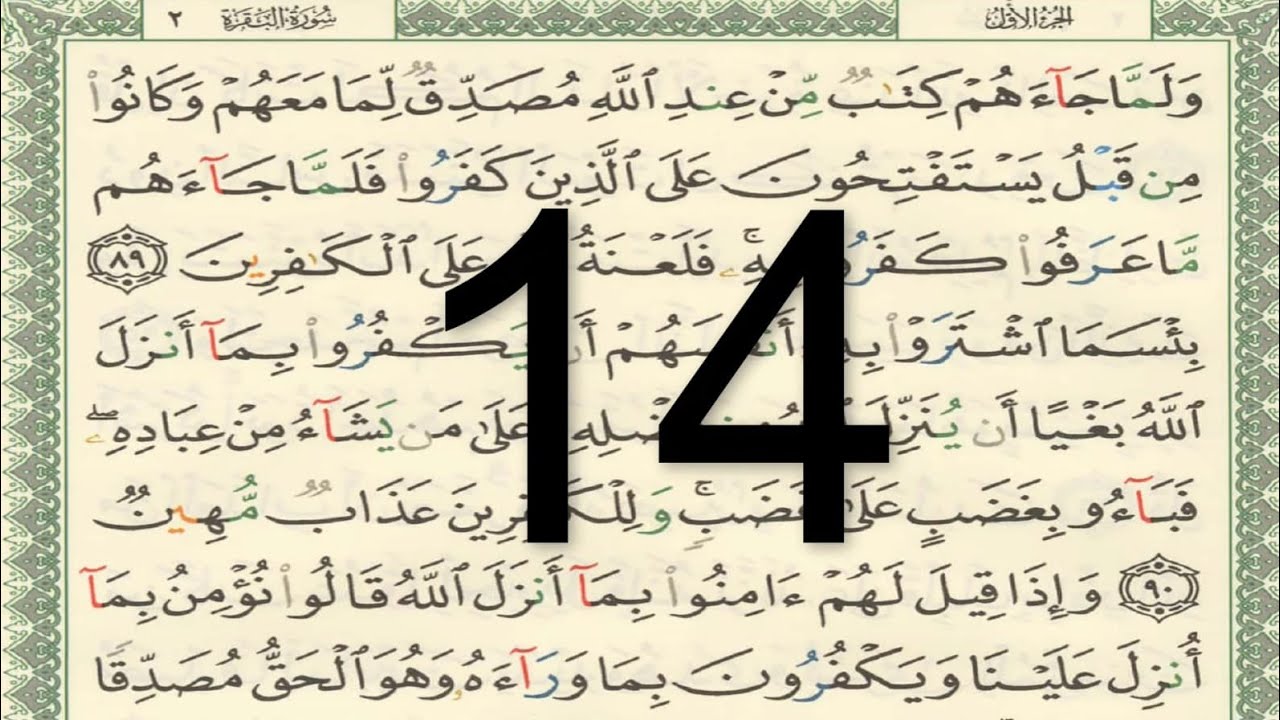 الجُزْءُ الأَوَّلُ سُورَةُ البَقَرَةِ ٢
وَلَمَّا جَآءَهُمْ كِتَٰبٌ مِّنْ عِندِ ٱللَّهِ مُصَدِّقٌ لِّمَا مَعَهُمْ وَكَانُوا۟
مِن قَبْلُ يَسْتَفْتِحُونَ عَلَى ٱلَّذِينَ كَفَرُوا۟ فَلَمَّا جَآءَهُم
مَّا عَرَفُوا۟ كَفَرُوا۟ بِهِۦۚ فَلَعْنَةُ عَلَى ٱلْكَٰفِرِينَ ٨٩
بِئْسَمَا ٱشْتَرَوْا۟ بِهِۦٓ أَنفُسَهُمْ أَن يَكْفُرُوا۟ بِمَآ أَنزَلَ
ٱللَّهُ بَغْيًا أَن يُنَزِّلَ فَضْلِهِۦ عَلَىٰ مَن يَشَآءُ مِنْ عِبَادِهِۦۖ
فَبَآءُو بِغَضَبٍ عَلَىٰ غَضَبٍۚ وَلِلْكَٰفِرِينَ عَذَابٌ مُّهِينٌ
٩٠ وَإِذَا قِيلَ لَهُمْ ءَامِنُوا۟ بِمَآ أَنزَلَ ٱللَّهُ قَالُوا۟ نُؤْمِنُ بِمَآ
أُنزِلَ عَلَيْنَا وَيَكْفُرُونَ بِمَا وَرَآءَهُۥ وَهُوَ ٱلْحَقُّ مُصَدِّقًا
14